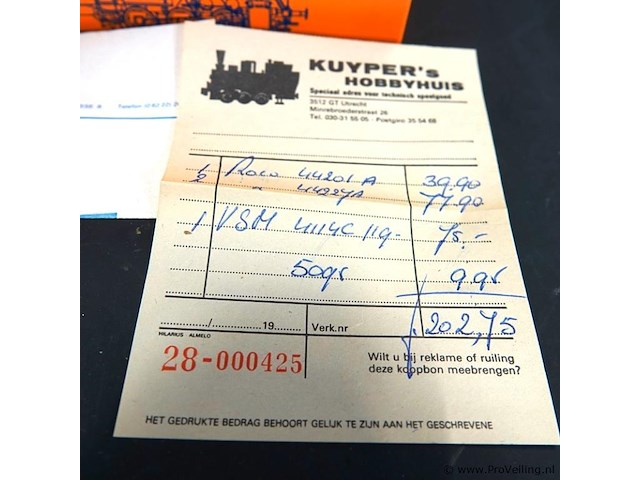 KUYPER's
HOBBYHUIS
Speciaal adres voor technisch speelgoed
3512 GT Utrecht
Minrebroederstraat 26
Tel. 030-31 55 05 - Postgiro 35 54 68
1 Roco 44201 A 39.90
2 " 44227A 77.90
1 VSM 4114C 119.- 75.-
50gr 9 gr
202,75
........../.......... 19..... Verk.nr
HILARIUS ALMELO
28-000425
Wilt u bij reklame of ruiling
deze koopbon meebrengen?
HET GEDRUKTE BEDRAG BEHOORT GELIJK TE ZIJN AAN HET GESCHREVENE
© www.ProVeiling.nl